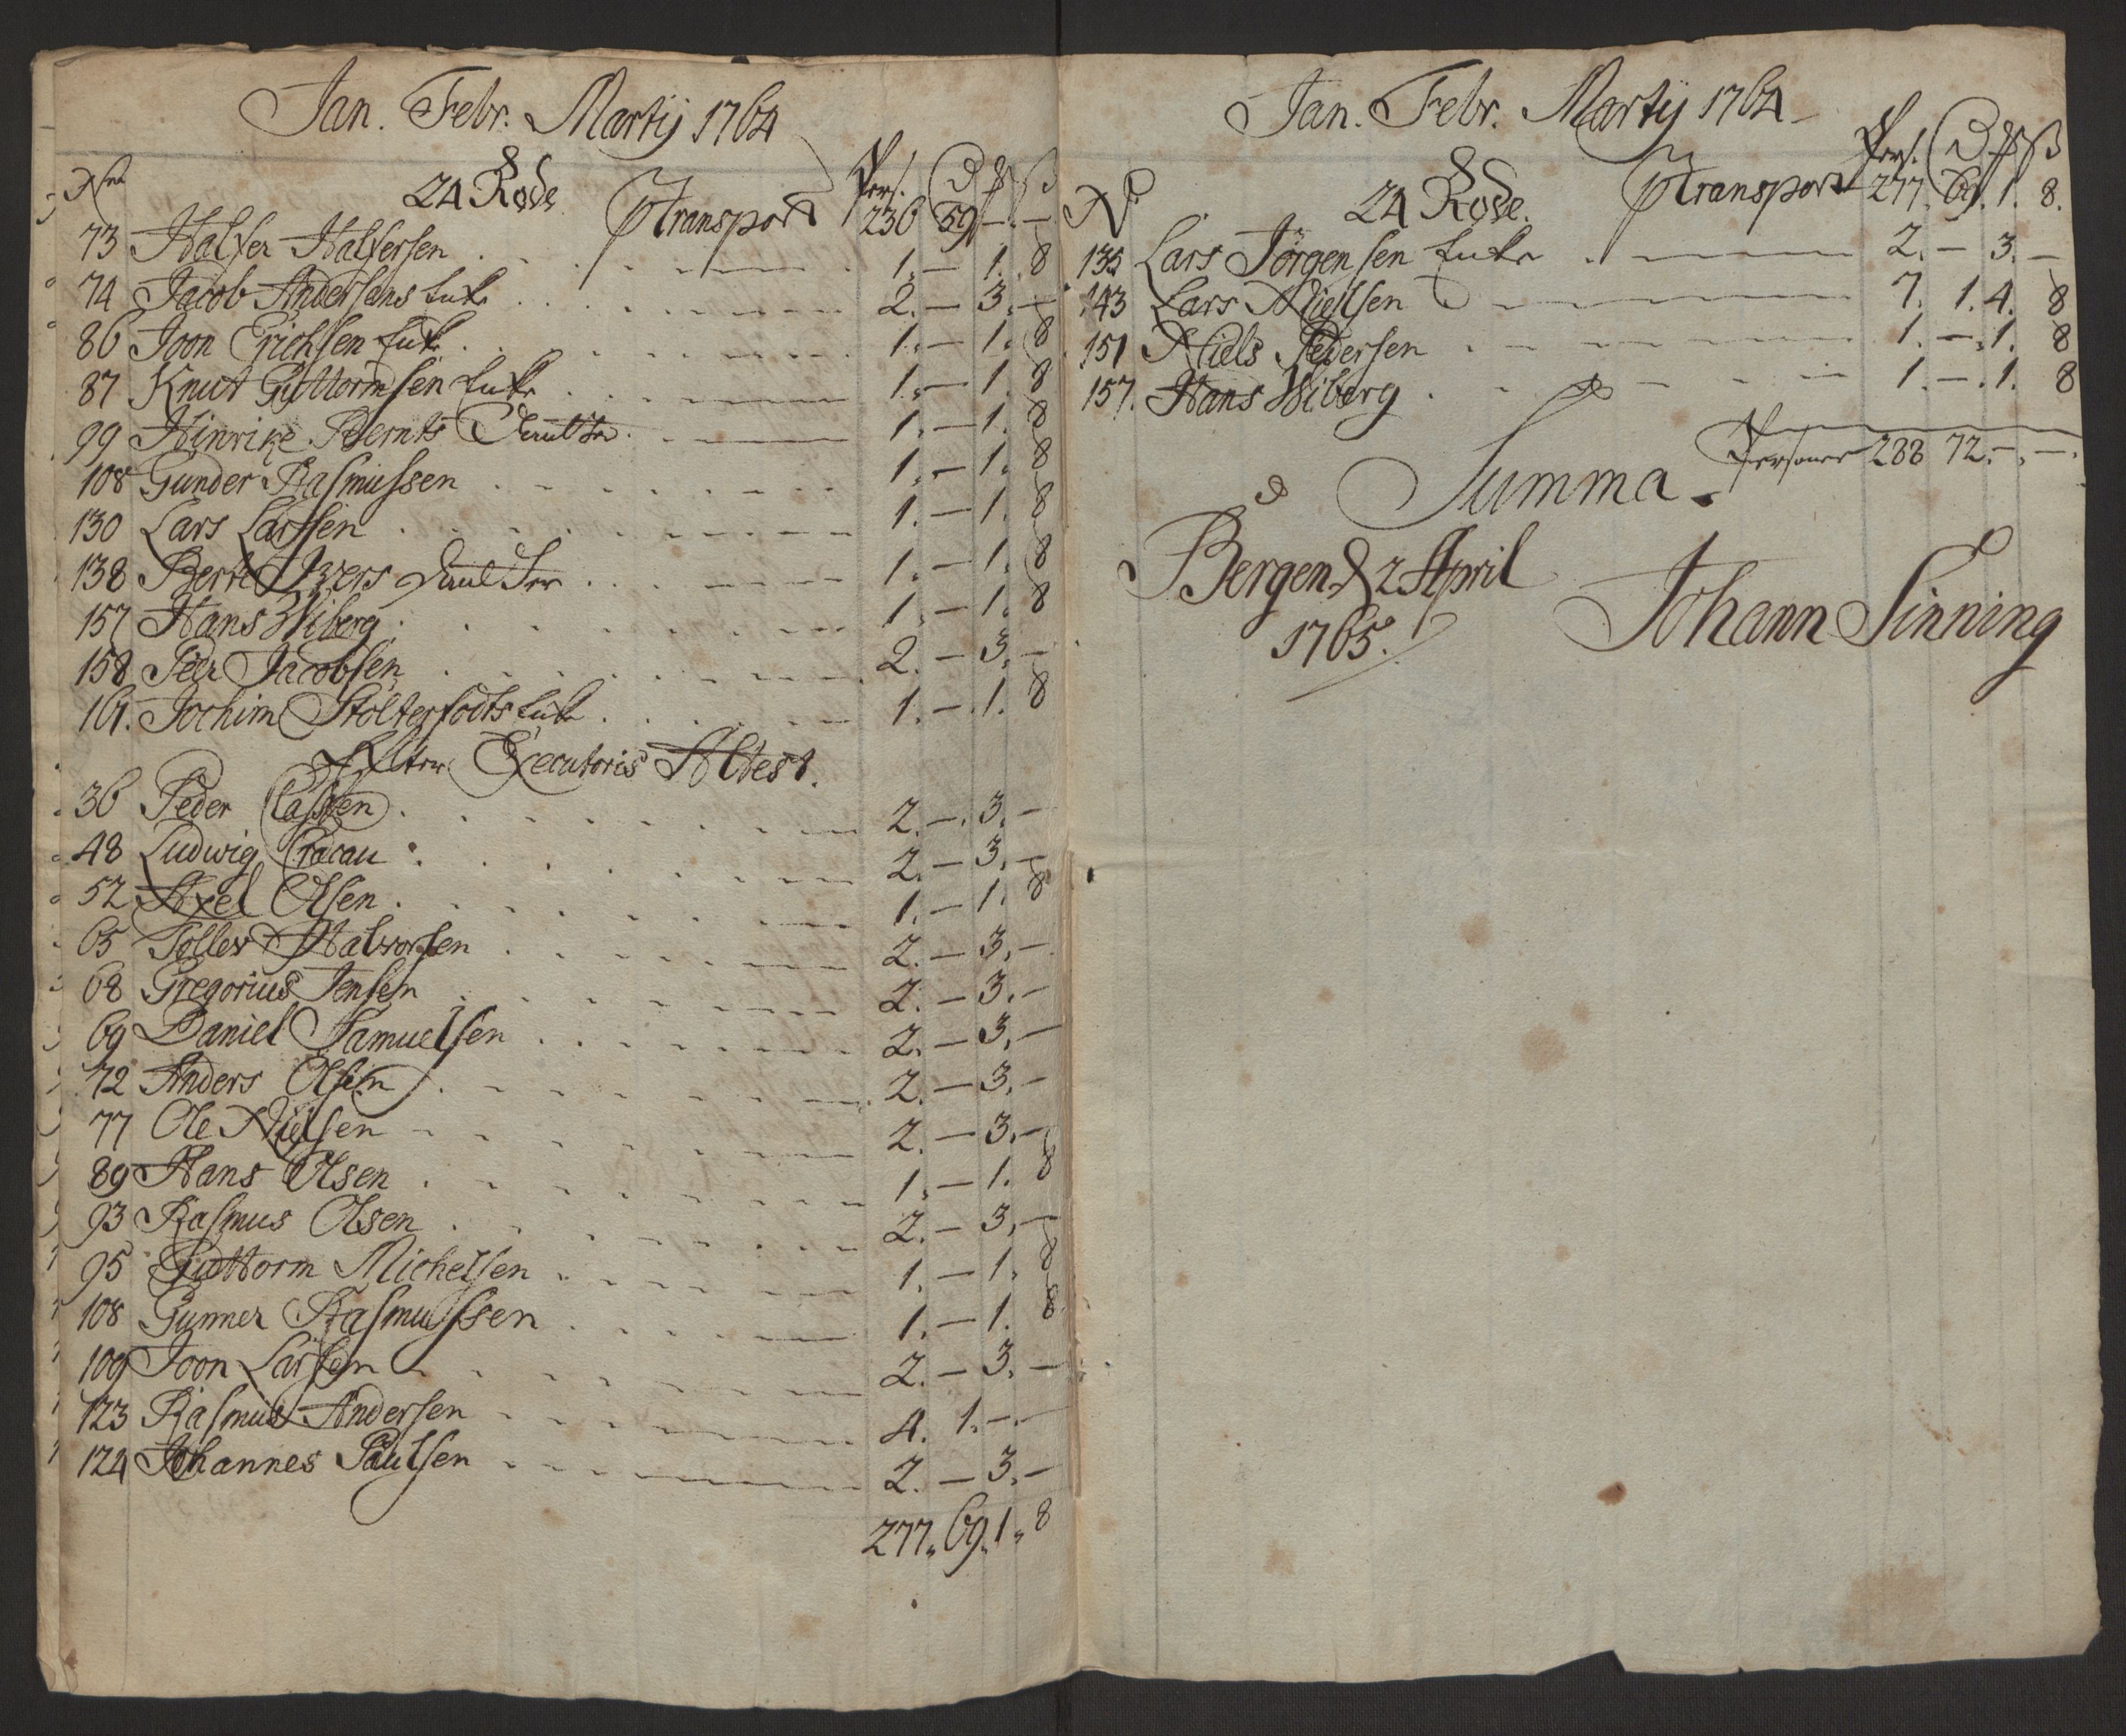 Jan. Febr. Martij 1764
No 24 Rode Transport Pers. 236 59 – –
73 Halfer Halfersen 1. – 1. 8
74 Jacob Andersens Enke 2. – 3. –
86 Joon Erichsen Enke 1. – 1. 8
87 Knut Guttormsen Enke 1. – 1. 8
99 Hinrike Bernts 1. – 1. 8
108 Gunder Rasmussen 1. – 1. 8
130 Lars Larssen 1. – 1. 8
138 Berte Ivers 1. – 1. 8
157 Hans Wiberg 1. – 1. 8
158 Peer Jacobsen 2. – 3. –
161. Jochim Stolterfodts Enke 1. – 1. 8
Efter Executoris Attest.
36 Peder Classen 2. – 3. –
48 Ludwig Cracau 2. – 3. –
52 Axel Olsen 1. – 1. 8
65 Tollev Halvorsen 2. – 3. –
68 Gregorius Jensen 2. – 3. –
69 Daniel Samuelsen 2. – 3. –
72 Anders Olsen 2. – 3. –
77 Ole Nielsen 2. – 3. –
89 Hans Olsen 1. – 1. 8
93 Rasmus Olsen 2. – 3. –
95 Guttorm Michelsen 1. – 1. 8
108 Gunner Rasmussen 1. – 1. 8
109 Joon Larsen 2. – 3. –
123 Rasmus Andersen 4. 1. – –
124 Johannes Paulsen 2. – 3. –
277. 69. 1. 8
Jan. Febr. Martij 1764
No 24 Rode. Transport Pers. 277. 69. 1. 8.
135 Lars Jörgensen Enke 2. – 3. –
143 Lars Nielsen 7. 1. 4. 8
151 Niels Pedersen 1. – 1. 8
157. Hans Wiberg 1. – 1. 8
Summa. Personer 288 72. – . –
Bergen d 2 April
1765.
Johann Sinning